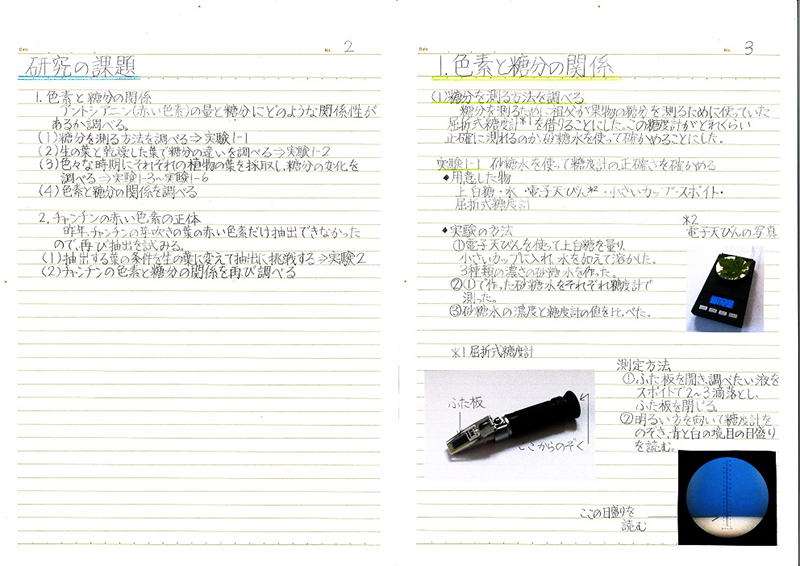 Date
No. 2
研究の課題
1. 色素と糖分の関係
アントシアニン(赤い色素)の量と糖分にどのような関係性が
あるか調べる。
(1)糖分を測る方法を調べる⇒実験1-1
(2)生の葉と乾燥した葉で糖分の違いを調べる⇒実験1-2
(3)色々な時期にそれぞれの植物の葉を採取し、糖分の変化を
調べる⇒実験1-3～実験1-6
(4)色素と糖分の関係を調べる
2. チャンチンの赤い色素の正体
昨年、チャンチンの芽吹きの葉の赤い色素だけ抽出できなかった
ので、再び抽出を試みる。
(1)抽出する葉の条件を生の葉に変えて抽出に挑戦する⇒実験2
(2)チャンチンの色素と糖分の関係を再び調べる
Date
No. 3
1.色素と糖分の関係
(1)糖分を測る方法を調べる
糖分を測るために祖父が果物の糖分を測るために使っていた
屈折式糖度計*1を借りることにした。この糖度計がどれくらい
正確に測れるのか、砂糖水を使って確かめることにした。
実験1-1 砂糖水を使って糖度計の正確さを確かめる
◆用意した物
上白糖・水・電子天びん*2・小さいカップ・スポイト・
屈折式糖度計
◆実験の方法
①電子天びんを使って上白糖を量り、
小さいカップに入れ、水を加えて溶かした。
3種類の濃さの砂糖水を作った。
②①で作った砂糖水をそれぞれ糖度計で
測った。
③砂糖水の濃度と糖度計の値を比べた。
*2
電子天びんの写真
*1 屈折式糖度計
ふた板
ここからのぞく
測定方法
①ふた板を開き、調べたい液を
スポイトで2～3滴落とし、
ふた板を閉じる。
②明るい方を向いて糖度計を
のぞき、青と白の境目の目盛り
を読む。
ここの目盛りを
読む